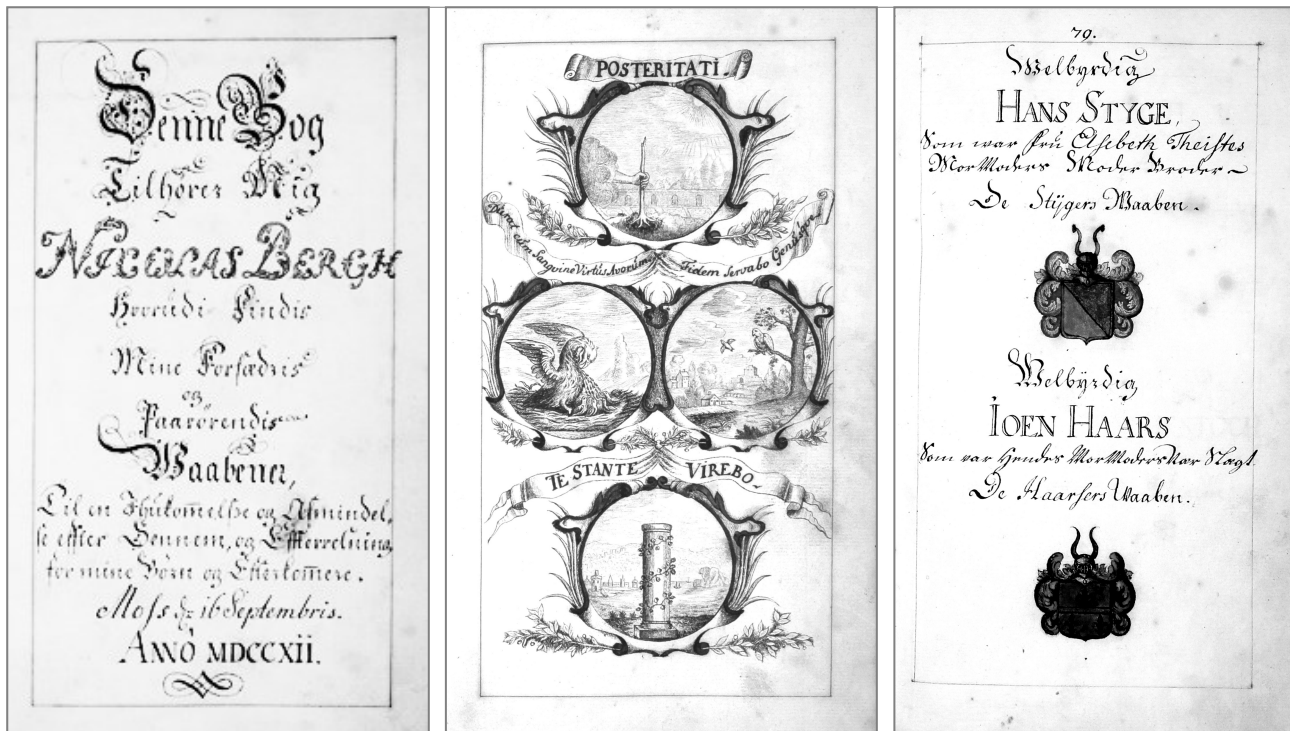 Denne Bog
Tilhører Mig
NICOLAS BERGH
Hvorudi Findis
Mine Forfædris
og
Paarørendis
Waabener,
Til en Ihukom̅else og Afmindel,
se effter Dennem, og Effterretning,
for mine Börn og Efterkom̅ere.
Moss 16 Septembris.
ANNO MDCCXII.
POSTERITATI.
Durat cum Sanguine Virtus Avorum
Fidem Servabo Genusque
TE STANTE VIREBO
79.
Welbyrdig
HANS STYGE,
Som war Fru Elsebeth Theistes
MorModers Moder Broder
De Stÿgers Waaben.
Welbÿrdig
IOEN HAARS
Som var Hendes MorModers Slægt.
De Haarsers Waaben.